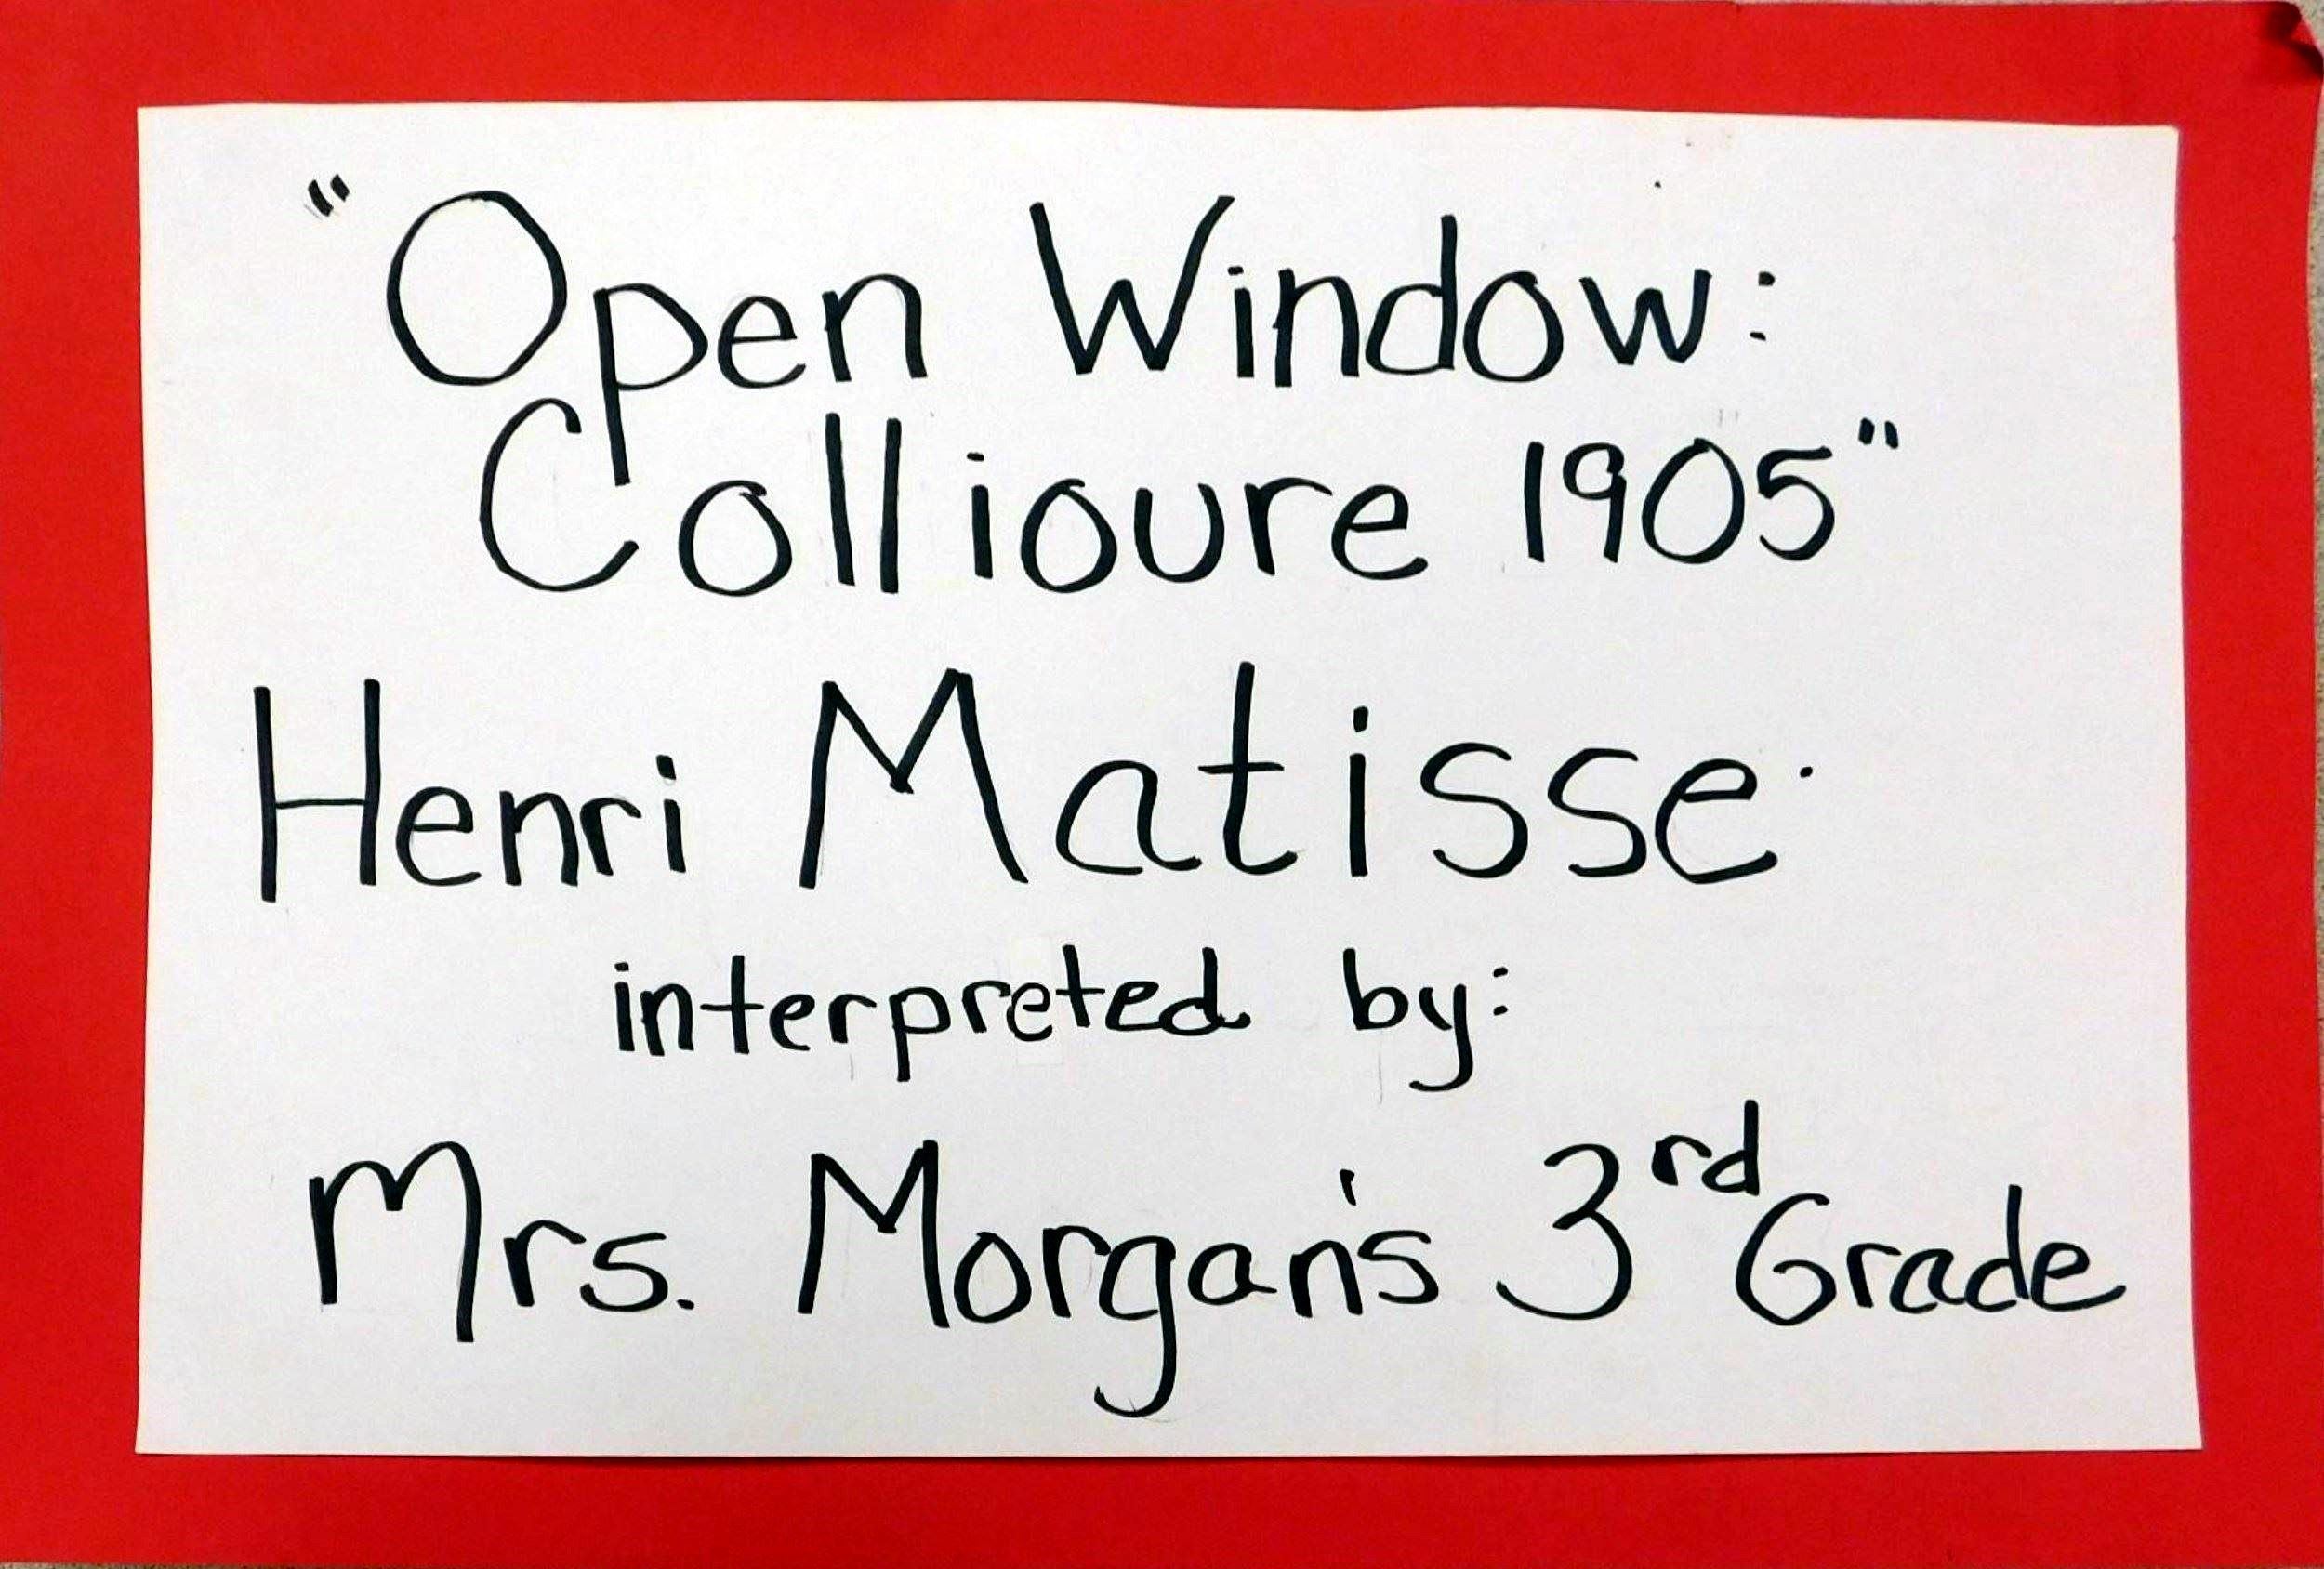 “Open Window:
Collioure 1905”
Henri Matisse
interpreted by:
Mrs. Morgan's 3rd Grade